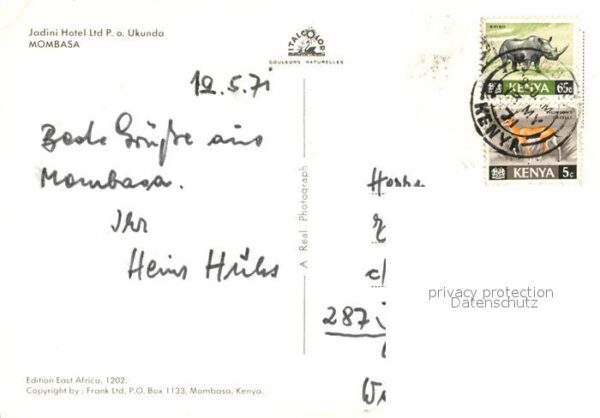 Jadini Hotel Ltd P. o. Ukunda
MOMBASA
ITALCOLOR
COULEURS NATURELLES
12.5.71
Grüße aus
Mombasa.
Ihr
Heinz Hüls
A Real Photograph
KENYA 65c
KENYA
KENYA 5c
287
privacy protection
Datenschutz
Edition East Africa, 1202.
Copyright by : Frank Ltd, P.O. Box 1133, Mombasa, Kenya.